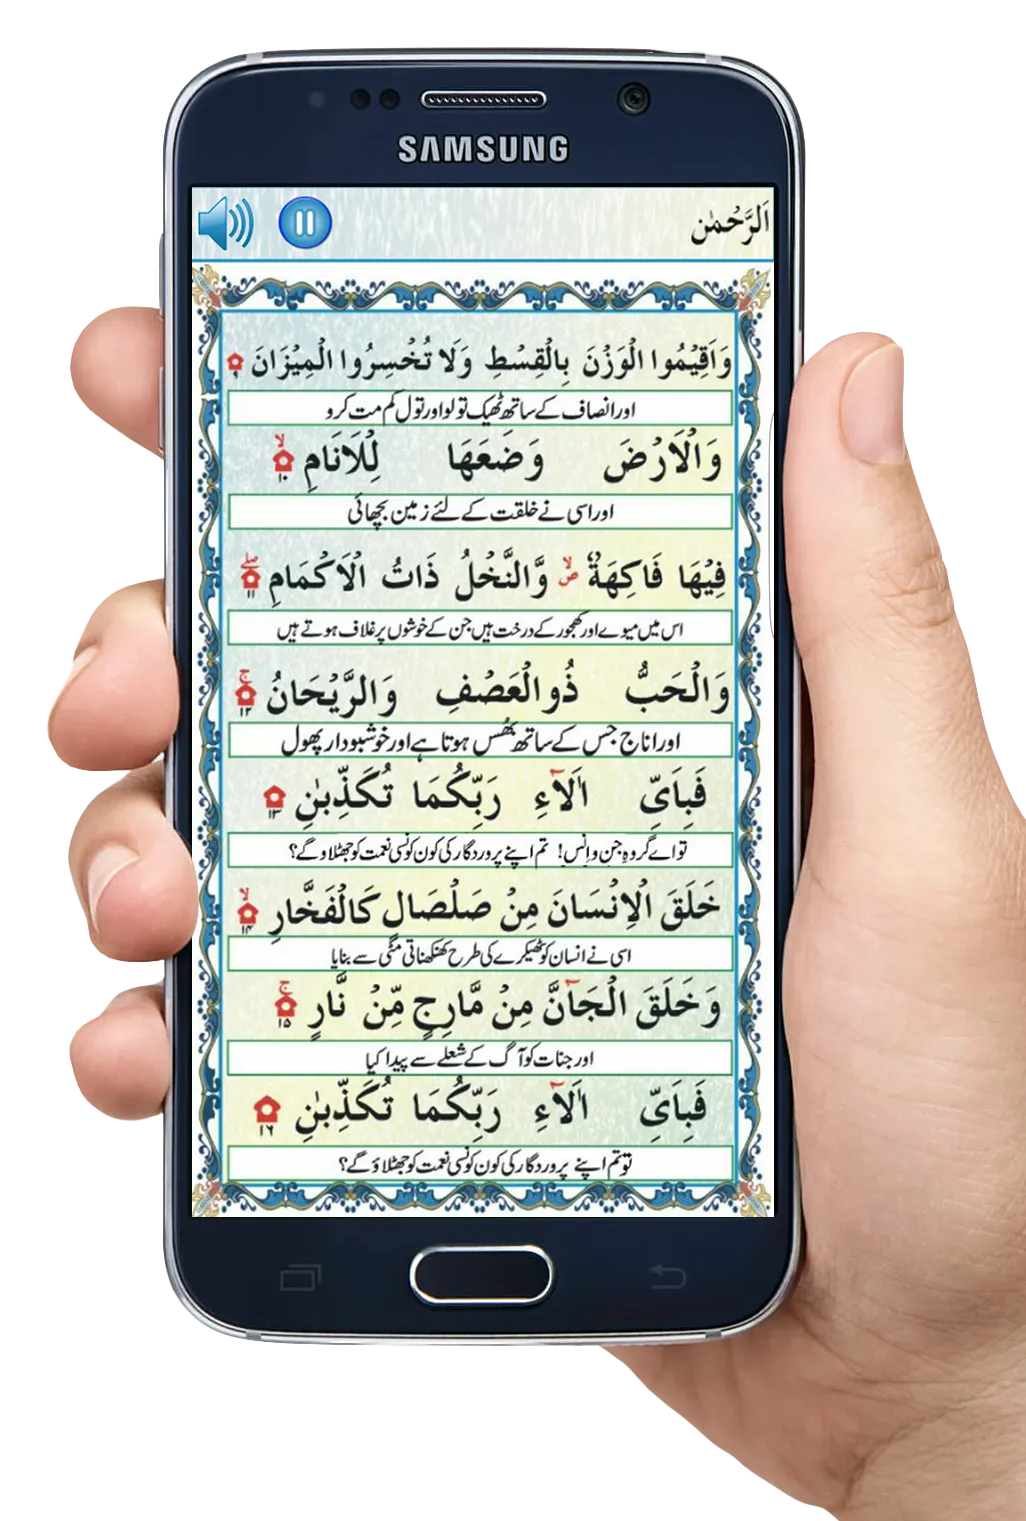 SAMSUNG
اَلرَّحْمٰن
وَاَقِيْمُوا الْوَزْنَ بِالْقِسْطِ وَلَا تُخْسِرُوا الْمِيْزَانَ ۹
اور انصاف کے ساتھ ٹھیک تولو اور تول کم مت کرو
وَالْاَرْضَ وَضَعَهَا لِلْاَنَامِ ۙ ۱۰
اور اسی نے خلقت کے لئے زمین بچھائی
فِيْهَا فَاكِهَةٌ ۙ ص وَّالنَّخْلُ ذَاتُ الْاَكْمَامِ ۖ ۱۱
اس میں میوے اور کھجور کے درخت ہیں جن کے خوشوں پر غلاف ہوتے ہیں
وَالْحَبُّ ذُوالْعَصْفِ وَالرَّيْحَانُ ۚ ۱۲
اور اناج جس کے ساتھ بھُس ہوتا ہے اور خوشبودار پھول
فَبِاَيِّ اٰلَآءِ رَبِّكُمَا تُكَذِّبٰنِ ۱۳
تو اے گروہِ جن و اِنس! تم اپنے پروردگار کی کون کونسی نعمت کو جھٹلاو گے؟
خَلَقَ الْاِنْسَانَ مِنْ صَلْصَالٍ كَالْفَخَّارِ ۙ ۱۴
اسی نے انسان کو ٹھیکرے کی طرح کھنکھناتی مٹی سے بنایا
وَخَلَقَ الْجَآنَّ مِنْ مَّارِجٍ مِّنْ نَّارٍ ۚ ۱۵
اور جنات کو آگ کے شعلے سے پیدا کیا
فَبِاَيِّ اٰلَآءِ رَبِّكُمَا تُكَذِّبٰنِ ۱۶
تو تم اپنے پروردگار کی کون کونسی نعمت کو جھٹلاؤ گے؟